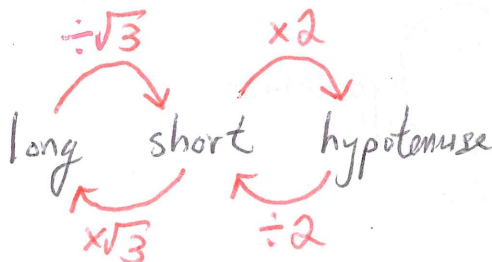 ÷√3 ×2
long short hypotenuse
×√3 ÷2